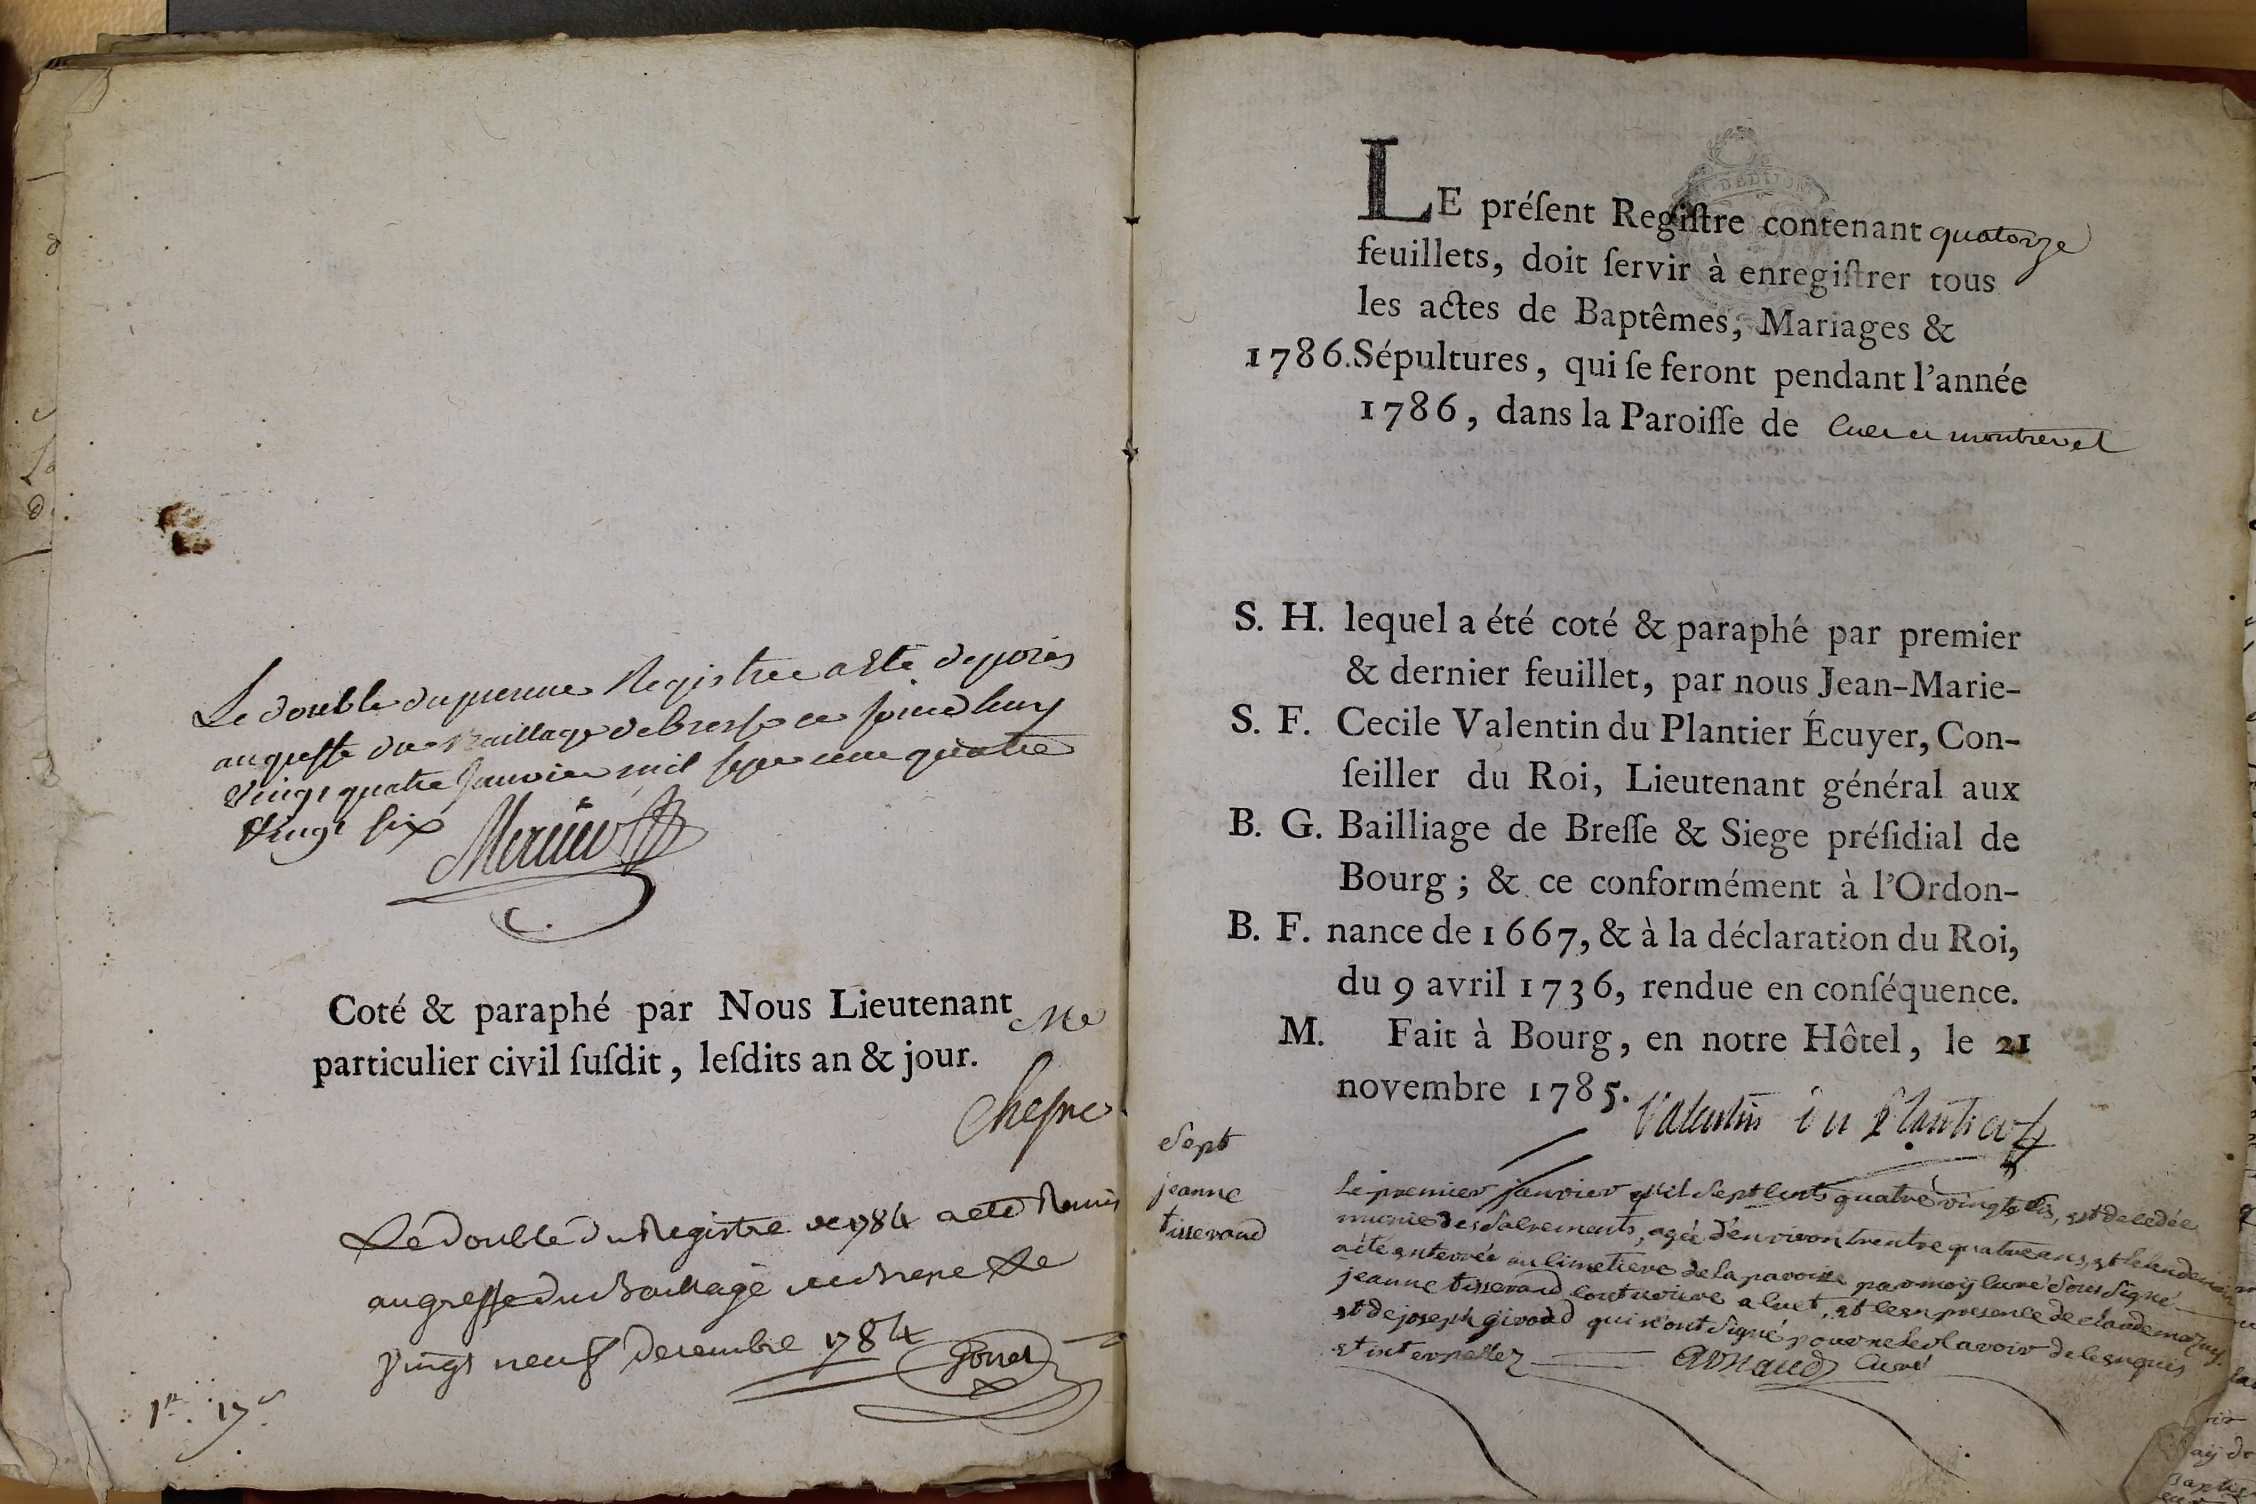 Le double du present Registre a Eté deposé
au greffe du Bailliage de bresse ce jourd'huy
vingt quatre Janvier mil sept cent quatre
vingt six
Coté & paraphé par Nous Lieutenant
particulier civil ſuſdit, leſdits an & jour.
Chesne
Le double du Registre de 1784 a eté Remis
au greffe du Bailliage de Bresse Le
vingt neuf Decembre 1784
LE préſent Regiſtre contenant quatorze
feuillets, doit ſervir à enregiſtrer tous
les actes de Baptêmes, Mariages &
1786. Sépultures, qui ſe feront pendant l'année
1786, dans la Paroiſſe de Cuet et montrevel
S. H. lequel a été coté & paraphé par premier
& dernier feuillet, par nous Jean-Marie-
S. F. Cecile Valentin du Plantier Écuyer, Con-
ſeiller du Roi, Lieutenant général aux
B. G. Bailliage de Breſſe & Siege préſidial de
Bourg ; & ce conformément à l'Ordon-
B. F. nance de 1667, & à la déclaration du Roi,
du 9 avril 1736, rendue en conſéquence.
M. Fait à Bourg, en notre Hôtel, le 21
novembre 1785.
Valentin du Plantier
Sept
jeanne
tisserand
Le premier janvier mil Sept Cents quatre vingts six, est decedée
munie des Sacrements, agée d'environ trentre quatre ans, et le lendemain
a été enterrée au Cimetiere de la paroisse par moy Curé Sous Signé
jeanne tisserand couturiere a Cuet, et ce en presence de claude
et de joseph giroud qui n'ont Signé pour ne le Sçavoir de ce enquis
et interpellez Arnaud Curé